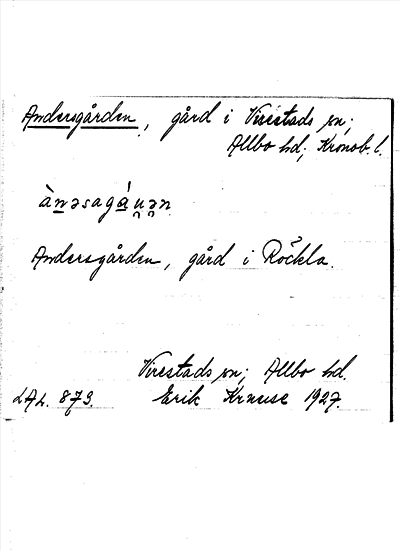 Andersgården, gård i Virestads sn;
Allbo hd; Kronob. l.
ànəsagáu̯ən
Andersgården, gård i Röckla.
Virestads sn; Allbo hd.
LAL. 873. Erik Krause 1927.